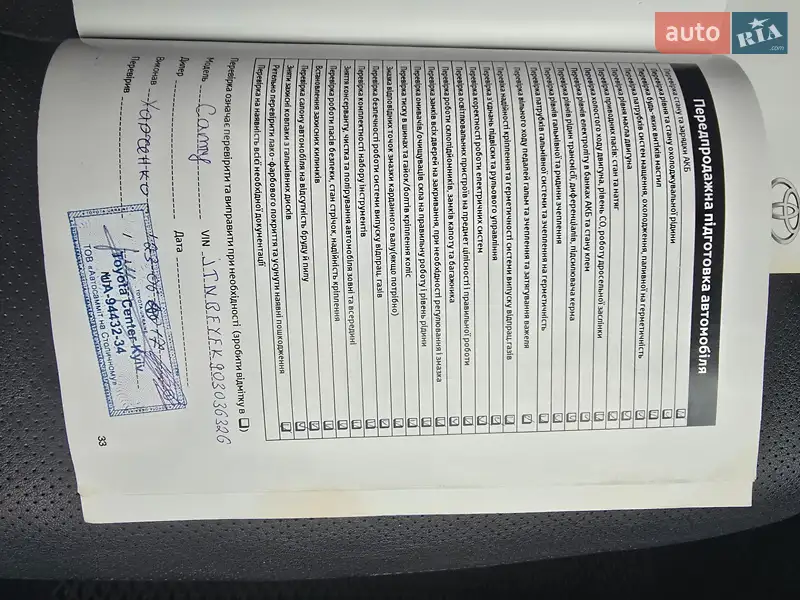 auto RIA.com
Передпродажна підготовка автомобіля
Перевірка стану та зарядки АКБ
рівни та стану охолоджувальної рідини
будь-яких витіків мастил
патрубків систем мащення, охолодження, паливної на герметичність
рівня масла двигуна
приводних пасів: стан та натяг
холостого ходу двигуна, рівень СО, роботу дросельної заслінки
рівня електроліту в банках АКБ та стану клем
рівнів рідин трансмісії, диференціалів, підсилювача керма
рівня гальмівної та рідини зчеплення
патрубків гальмівної системи та зчеплення на герметичність
Перевірка вільного ходу педалей гальм та зчеплення та затягування важеля
Перевірка надійності кріплення та герметичності системи випуску відпрац.газів
Перевірка з'єднань підвіски та рульового управління
Перевірка коректності роботи електричних систем
Перевірка освітлювальних пристроїв на предмет цілісності і правильної роботи
Перевірка роботи склопідйомників, замків капоту та багажника
Перевірка замків всіх дверей на закривання, при необхідності регулювання і змазка
Перевірка омивачів/очищувачів скла на правильну роботу і рівень рідини
Перевірка тиску в шинах та гайок/болтів кріплення коліс
Змазка відповідних точок змазки карданного валу(якщо потрібно)
Перевірка безпечності роботи системи випуску відпрац. газів
Перевірка комплектності набору інструментів
Зняття консерванту, чистка та полірування автомобіля зовні та всередині
Перевірка роботи пасів безпеки, стан стрічок, надійність кріплення
Встановлення захисних килимків
Перевірка салону автомобіля на відсутність бруду й пилу
Зняти захисні ковпаки з гальмівних дисків
Ретельно перевірити лако-фарбового покриття та усунути наявні пошкодження
Перевірка на наявність всієї необхідної документації
Перевірка означає перевірити та виправити при необхідності (зробити відмітку в ☐)
Модель Camry VIN JTNBEYEK203036326
Дилер Дата
Виконав Харченко
Перевірив
Toyota Center Kyiv
NUA-94432-34
ТОВ «Автосаміт на Столичному»
33